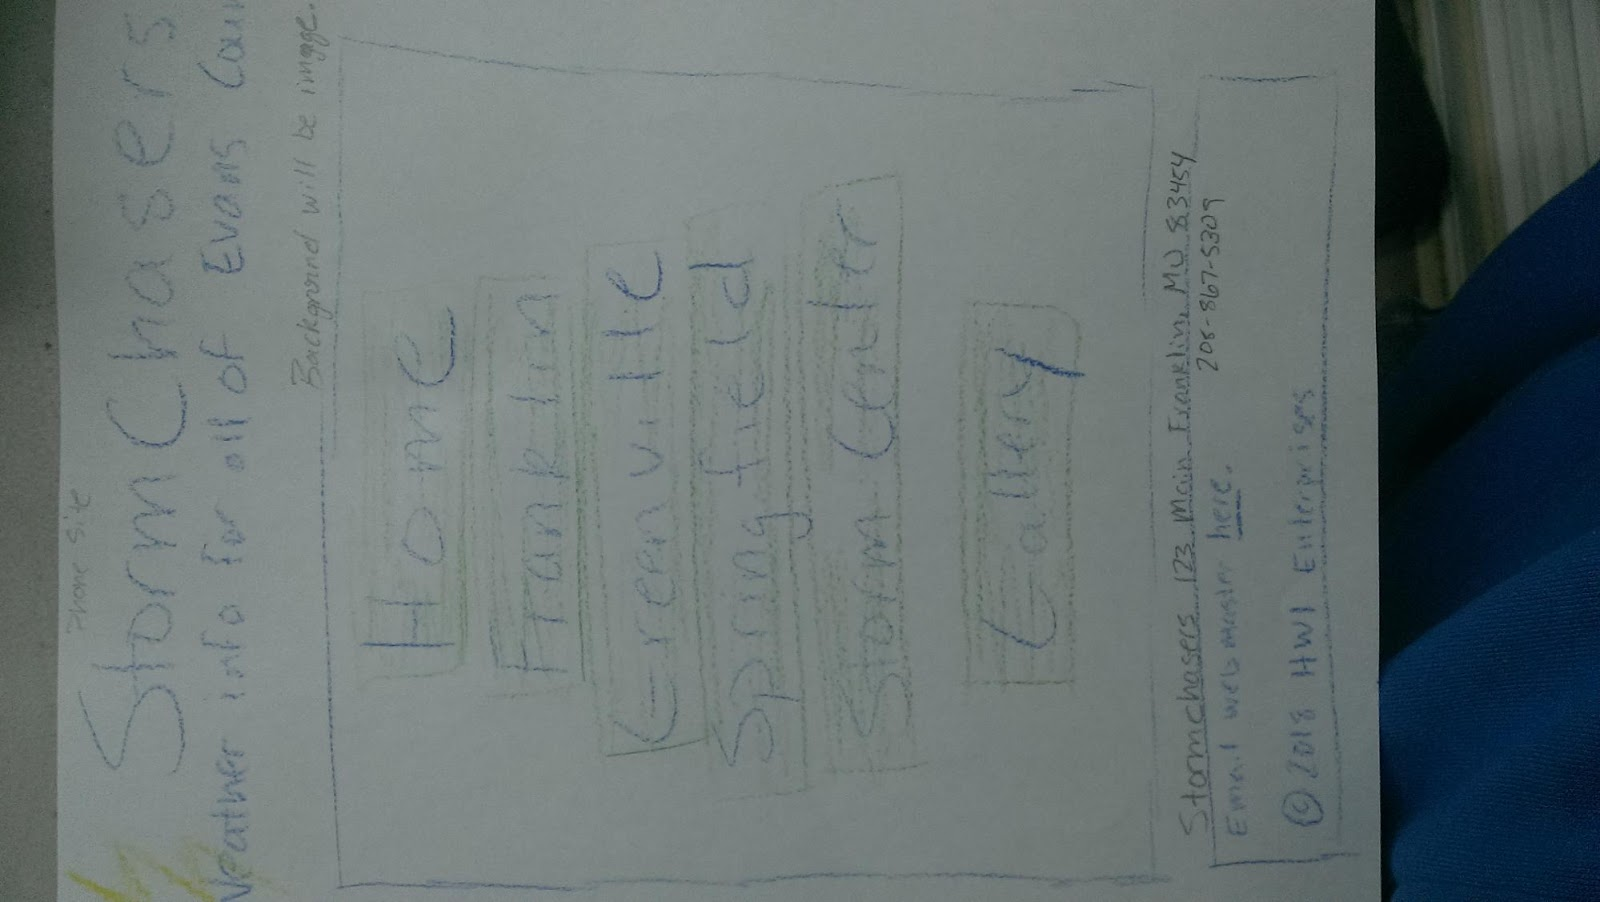 Phone Site
StormChasers
Weather info for all of Evans Coun
Background will be image.
Home
Franklin
Greenville
Springfield
Storm Center
Gallery
Stormchasers 123 Main Franklin, MU 83454
208-867-5309
Email webmaster here.
© 2018 HW1 Enterprises